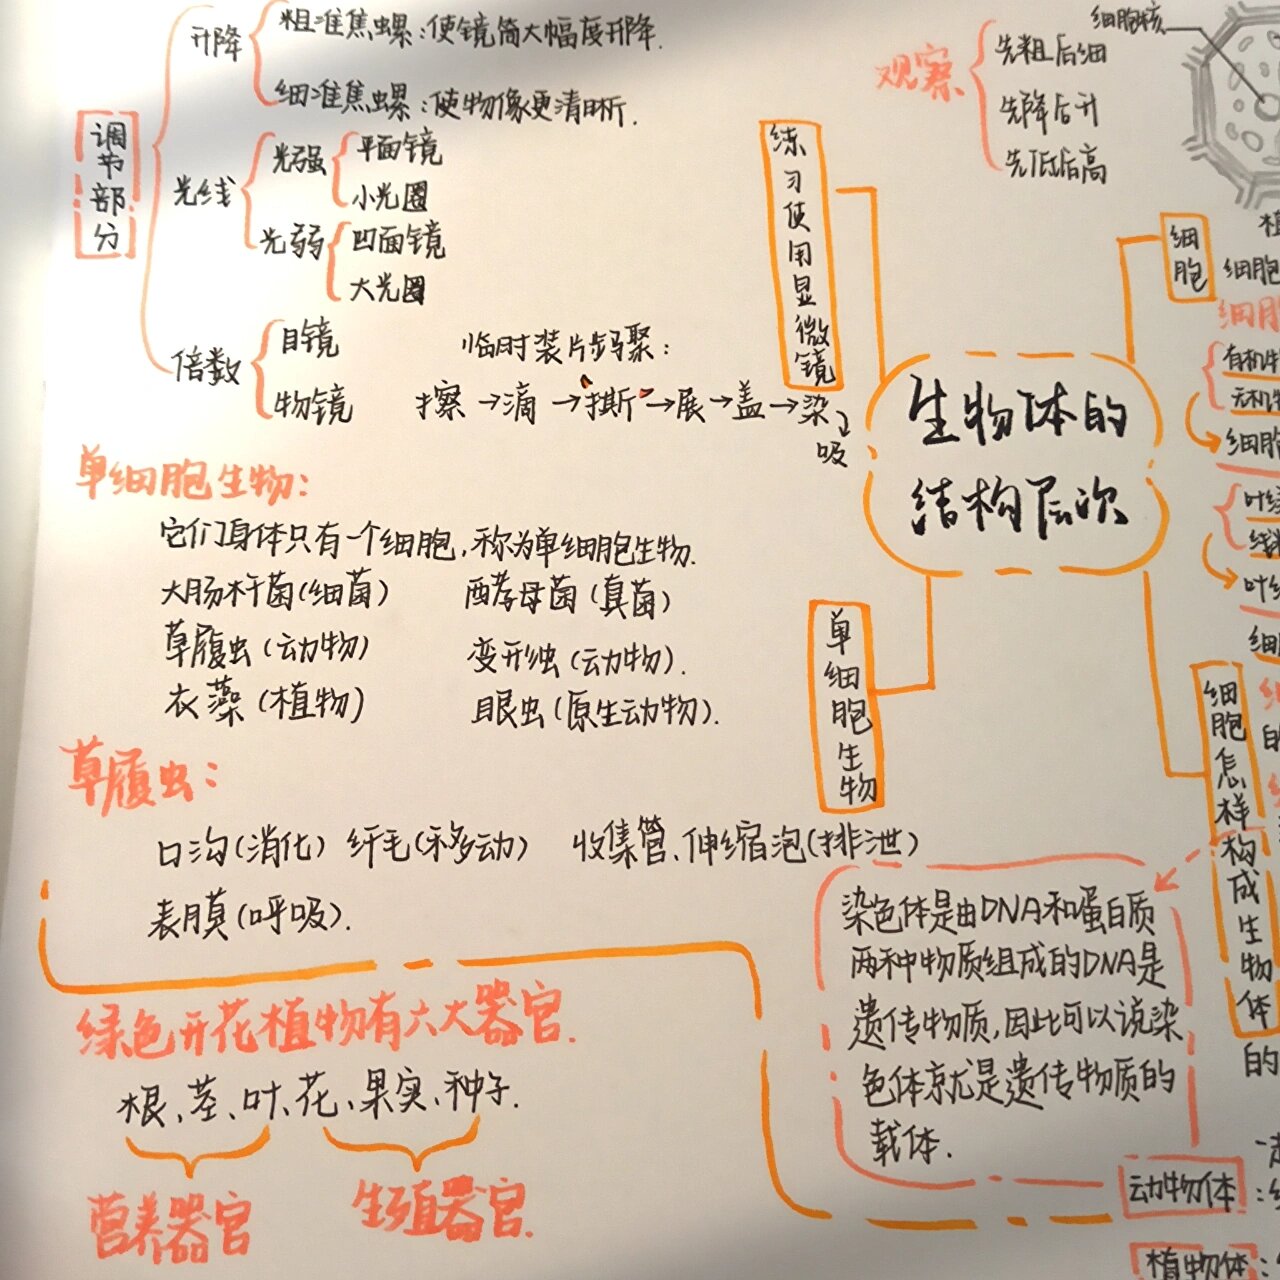 调节部分
升降
粗准焦螺：使镜筒大幅度升降.
细准焦螺：使物像更清晰.
光线
光强
平面镜
小光圈
光弱
凹面镜
大光圈
倍数
目镜
物镜
临时装片步骤：
擦→滴→撕→展→盖→染
吸
单细胞生物：
它们身体只有一个细胞,称为单细胞生物.
大肠杆菌(细菌) 酵母菌(真菌)
草履虫(动物) 变形虫(动物).
衣藻(植物) 眼虫(原生动物).
草履虫：
口沟(消化) 纤毛(移动) 收集管、伸缩泡(排泄)
表膜(呼吸).
绿色开花植物有六大器官.
根、茎、叶、花、果实、种子.
营养器官
生殖器官.
观察
先粗后细
先降后升
先低后高
细胞核
练习使用显微镜
细胞
生物体的
结构层次
单细胞生物
细胞怎样构成生物体
细胞
有机
无机
细胞
染色体是由DNA和蛋白质
两种物质组成的DNA是
遗传物质,因此可以说染
色体就是遗传物质的
载体.
的
动物体：
植物体：